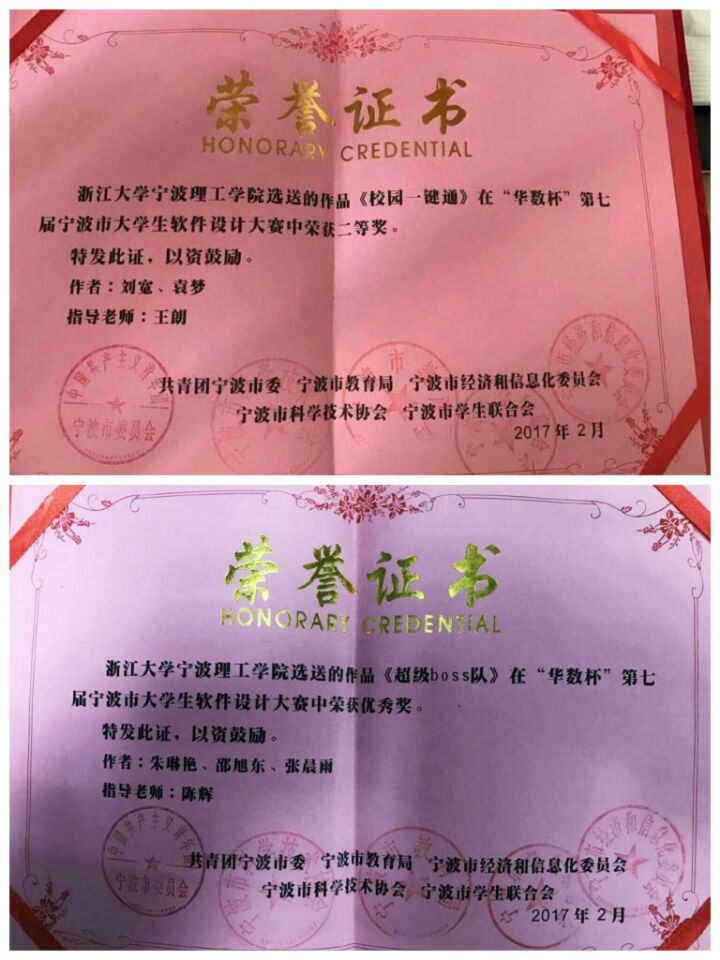 荣誉证书
HONORARY CREDENTIAL
浙江大学宁波理工学院选送的作品《校园一键通》在“华数杯”第七
届宁波市大学生软件设计大赛中荣获二等奖。
特发此证，以资鼓励。
作者：刘宽、袁梦
指导老师：王朗
共青团宁波市委 宁波市教育局 宁波市经济和信息化委员会
宁波市科学技术协会 宁波市学生联合会
2017年2月
宁波市委员会
荣誉证书
HONORARY CREDENTIAL
浙江大学宁波理工学院选送的作品《超级boss队》在“华数杯”第七
届宁波市大学生软件设计大赛中荣获优秀奖。
特发此证，以资鼓励。
作者：朱琳艳、邵旭东、张晨雨
指导老师：陈辉
共青团宁波市委 宁波市教育局 宁波市经济和信息化委员会
宁波市科学技术协会 宁波市学生联合会
2017年2月
宁波市委员会